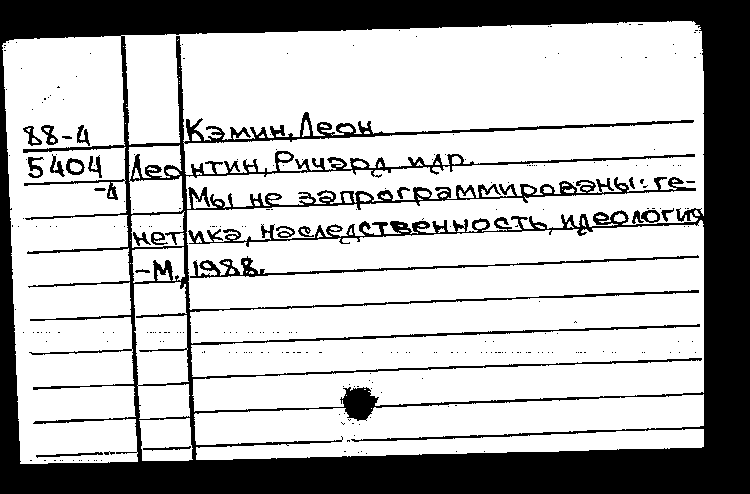 88-4 Кэмин, Леон.
5404 Леонтин, Ричард и др.
-4 Мы не запрограммированы: ге-
нетика, наследственность, идеология
-М., 1988.